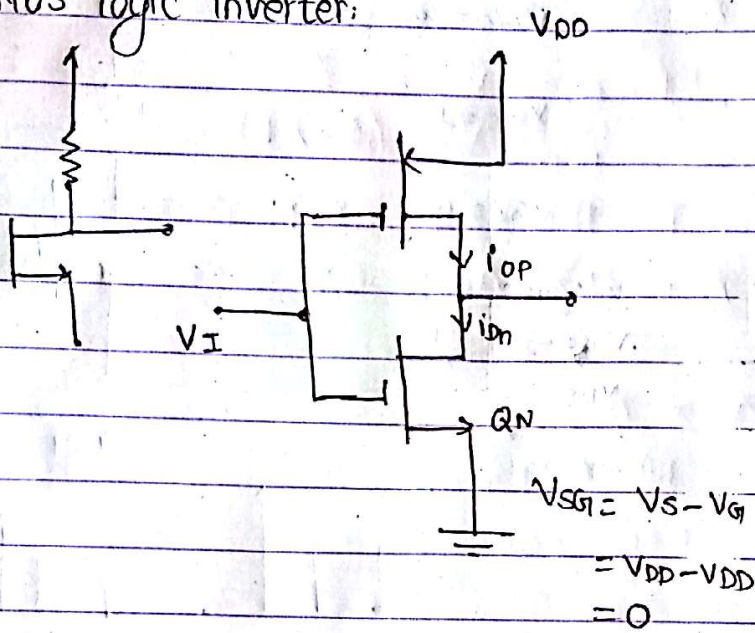 logic inverter:
VDD
iOP
VI
iDn
QN
VSG = VS - VG
= VDD - VDD
= 0